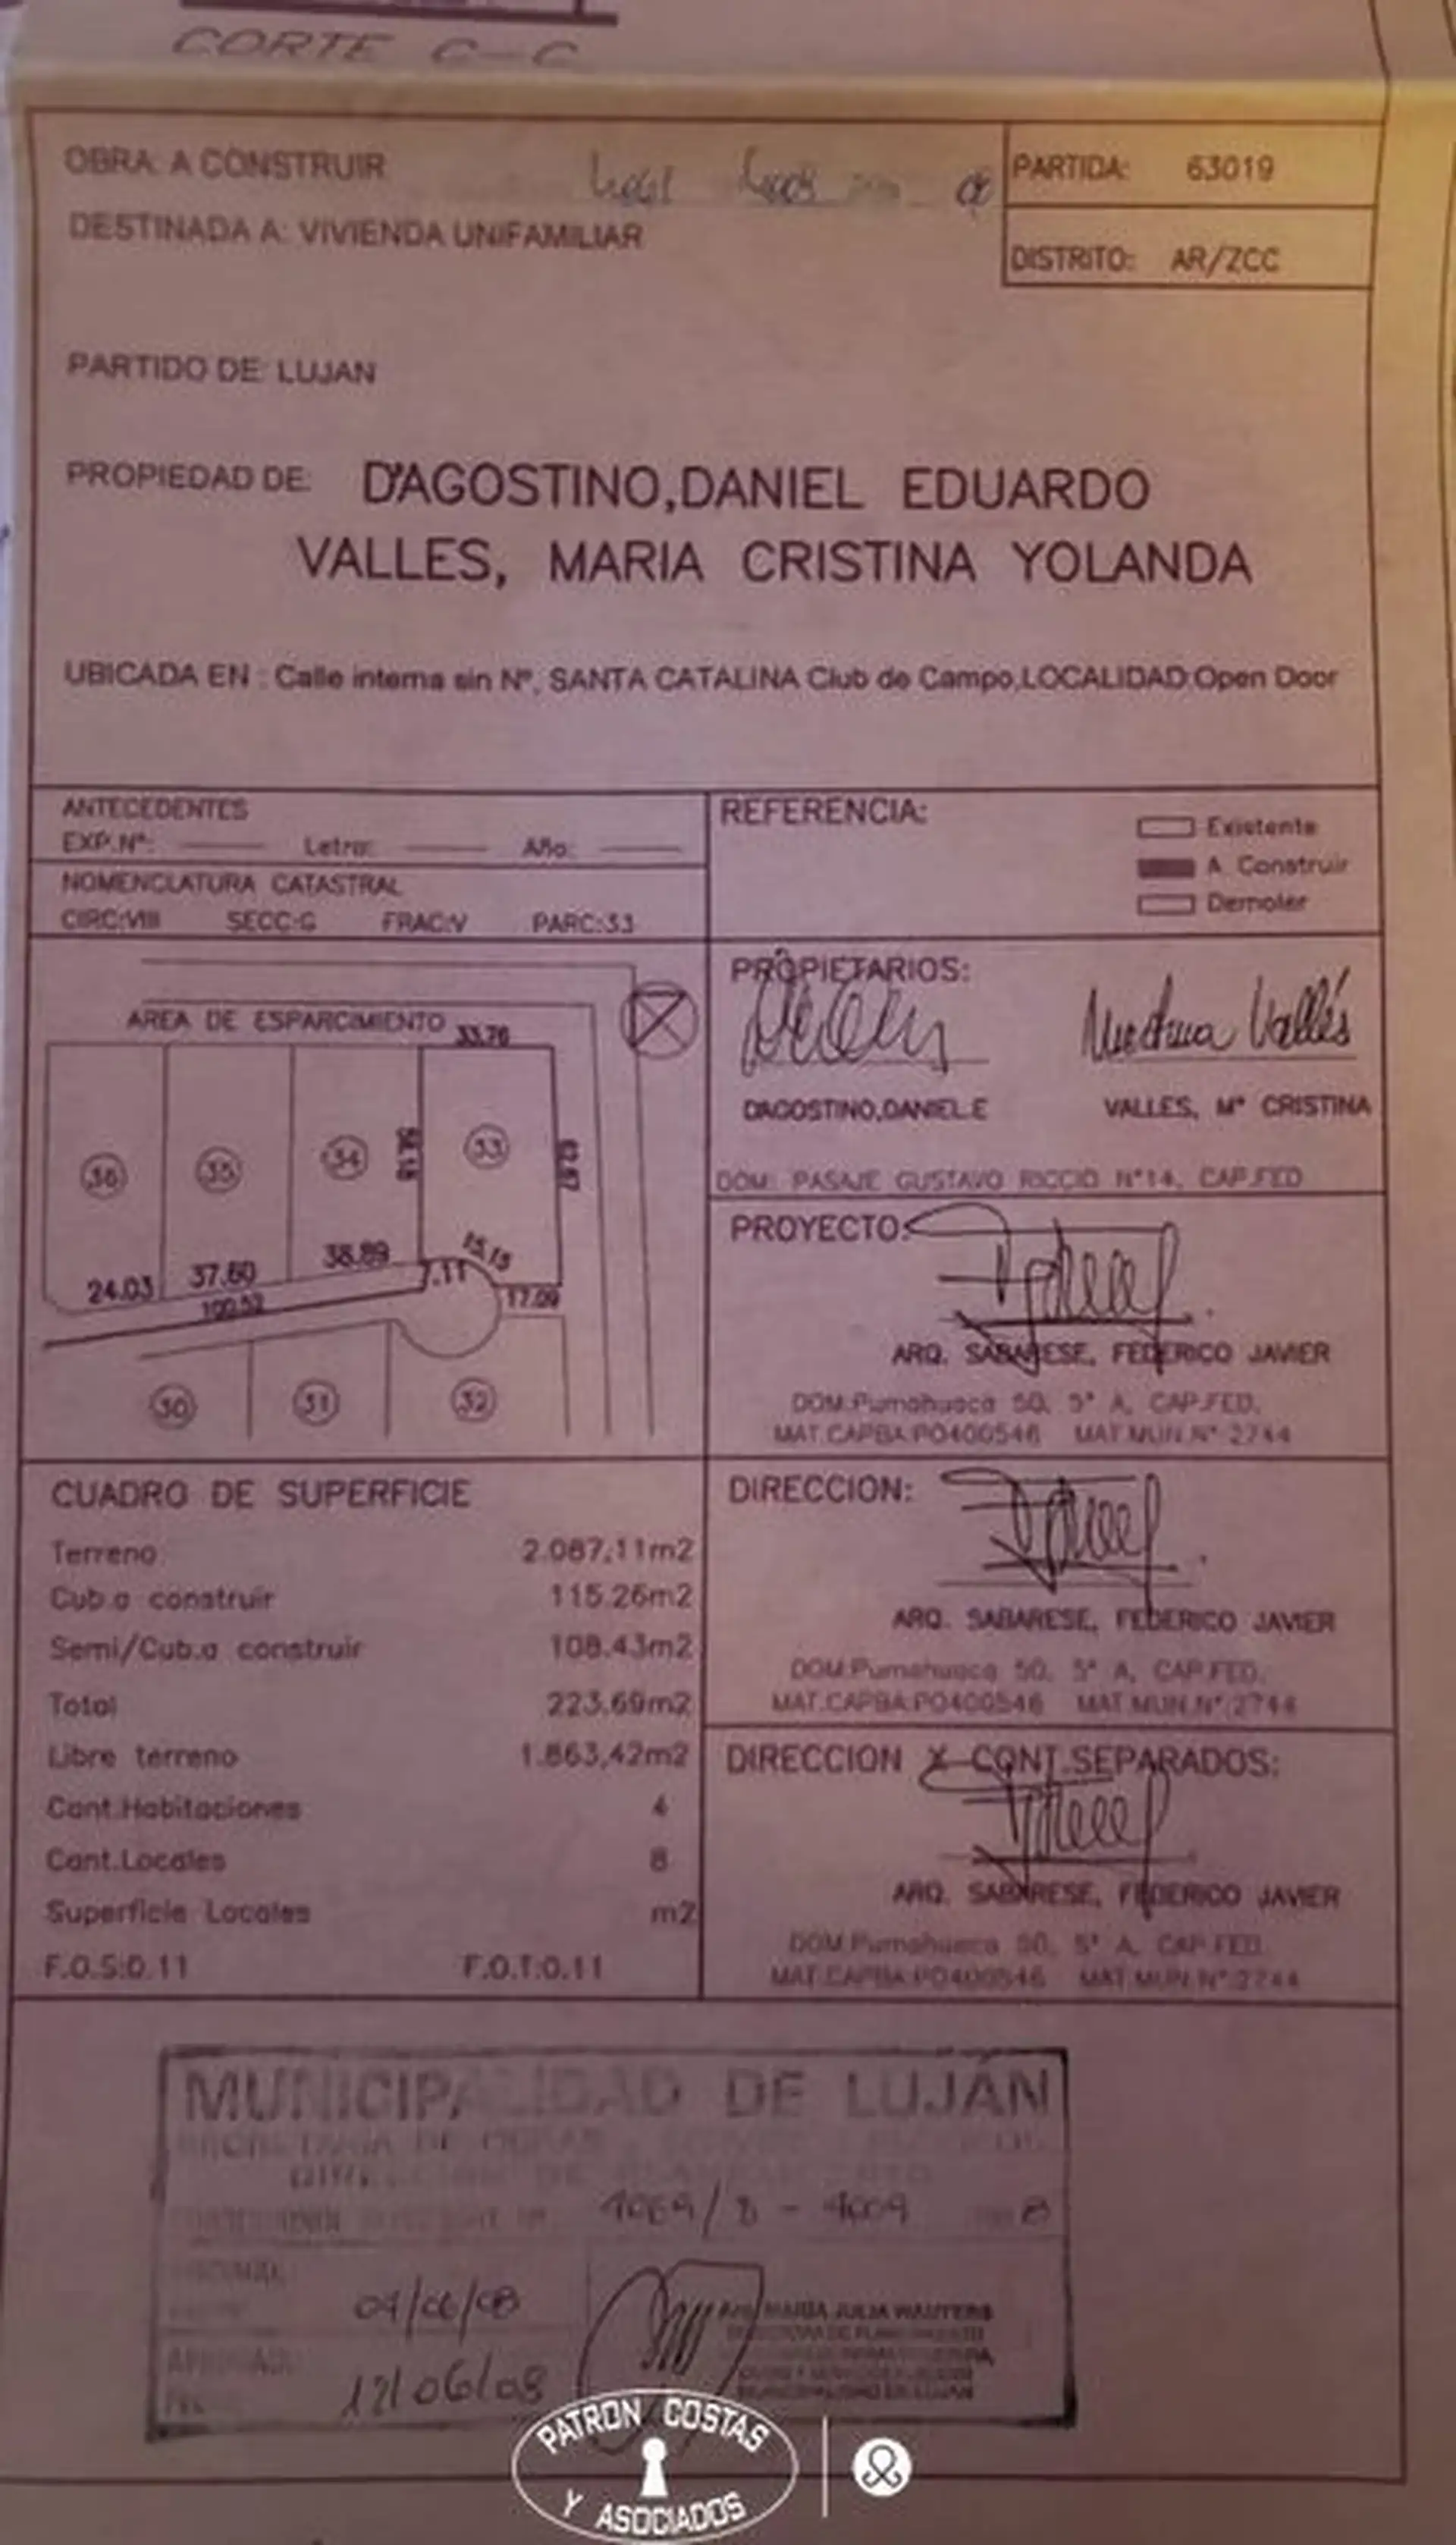 CORTE C-C
OBRA: A CONSTRUIR
PARTIDA: 63019
DESTINADA A: VIVIENDA UNIFAMILIAR
DISTRITO: AR/ZCC
PARTIDO DE: LUJAN
PROPIEDAD DE: D'AGOSTINO,DANIEL EDUARDO
VALLES, MARIA CRISTINA YOLANDA
UBICADA EN : Calle interna sin Nº, SANTA CATALINA Club de Campo,LOCALIDAD:Open Door
ANTECEDENTES
EXP.Nº: Letra: Año:
NOMENCLATURA CATASTRAL
CIRC:VIII SECC:G FRAC:V PARC:33
REFERENCIA:
Existente
A Construir
Demoler
AREA DE ESPARCIMIENTO
33.76
36
35
34
33
24.03
37.60
38.89
7.11
15.15
17.09
100.52
30
31
32
PROPIETARIOS:
D'AGOSTINO,DANIEL.E
VALLES, Mª CRISTINA
DOM: PASAJE GUSTAVO RICCIO Nº14, CAP.FED
PROYECTO:
ARQ. SABARESE, FEDERICO JAVIER
DOM:Pumahuaca 50, 5º A, CAP.FED.
MAT.CAPBA:PO400546 MAT.MUN.Nº:2744
CUADRO DE SUPERFICIE
Terreno 2.087,11m2
Cub.a construir 115.26m2
Semi/Cub.a construir 108.43m2
Total 223,69m2
Libre terreno 1.863,42m2
Cant.Habitaciones 4
Cant.Locales 8
Superficie Locales m2
F.O.S:0.11 F.O.T:0.11
DIRECCION:
ARQ. SABARESE, FEDERICO JAVIER
DOM:Pumahuaca 50, 5º A, CAP.FED.
MAT.CAPBA:PO400546 MAT.MUN.Nº:2744
DIRECCION X CONT.SEPARADOS:
ARQ. SABARESE, FEDERICO JAVIER
DOM:Pumahuaca 50, 5º A, CAP.FED.
MAT.CAPBA:PO400546 MAT.MUN.Nº:2744
MUNICIPALIDAD DE LUJÁN
MARIA JULIA WAUTERS
12/06/08
MUNICIPALIDAD DE LUJAN
PATRON COSTAS
Y ASOCIADOS